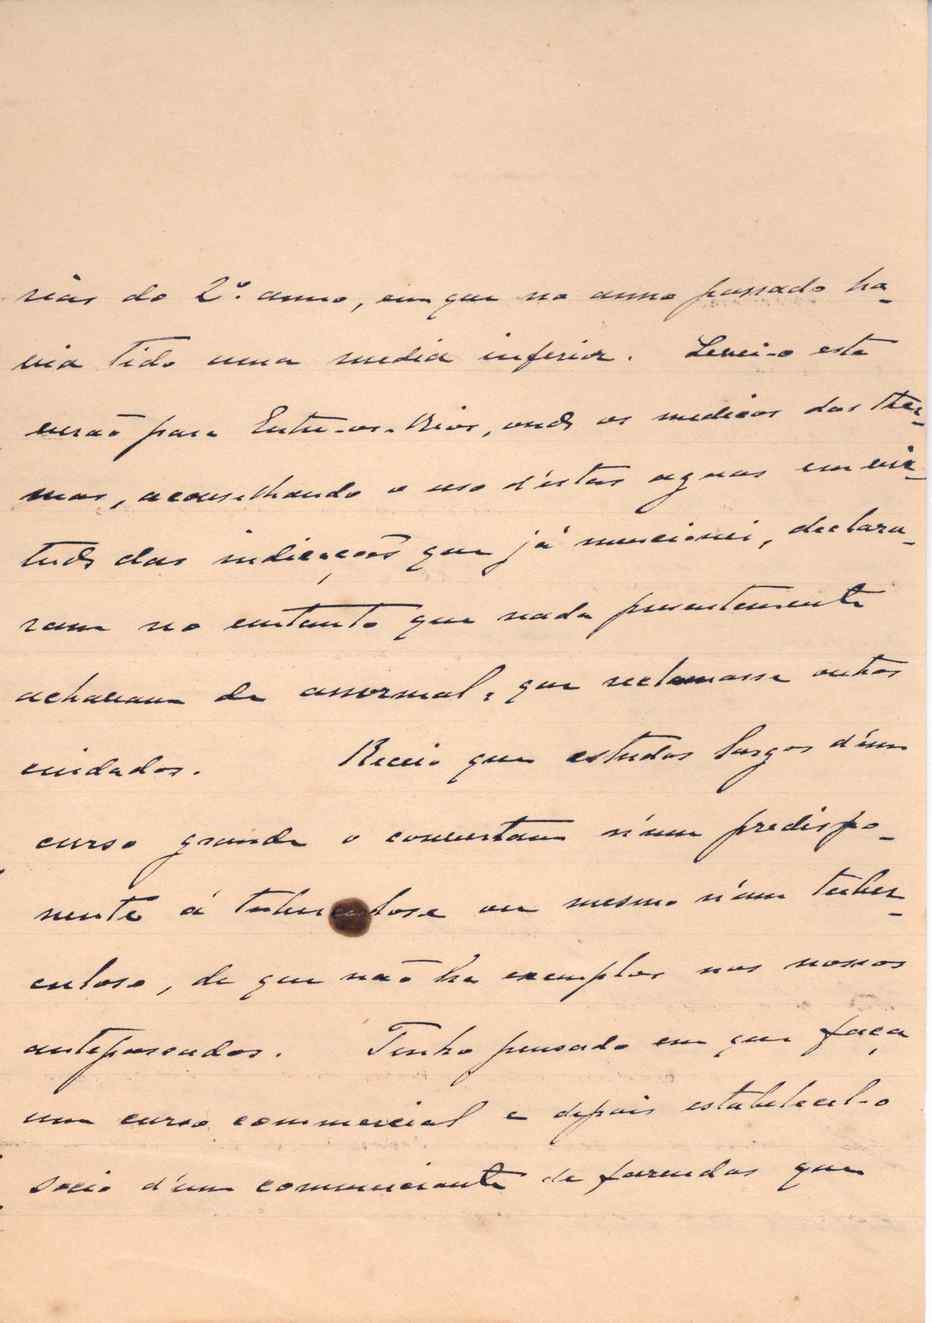 rias do 2º. anno, em que no anno passado ha-
via tido uma media inferior. Levei-o este
verão para Entre-os-Rios, onde os medicos das ther-
mas, aconselhando o uso d'estas aguas em vir-
tude das indicações que já mencionei, declara-
ram no emtanto que nada presentemente
achavam de anormal, que reclamasse outros
cuidados. Receio que estudos largos d'um
curso grande o convertam n'um predispo-
nente á tuberculose ou mesmo n'um tuber-
culoso, de que não ha exemplos nos nossos
antepassados. Tenho pensado em que faça
um curso commercial e depois estabelecel-o
socio d'um commerciante de fazendas que